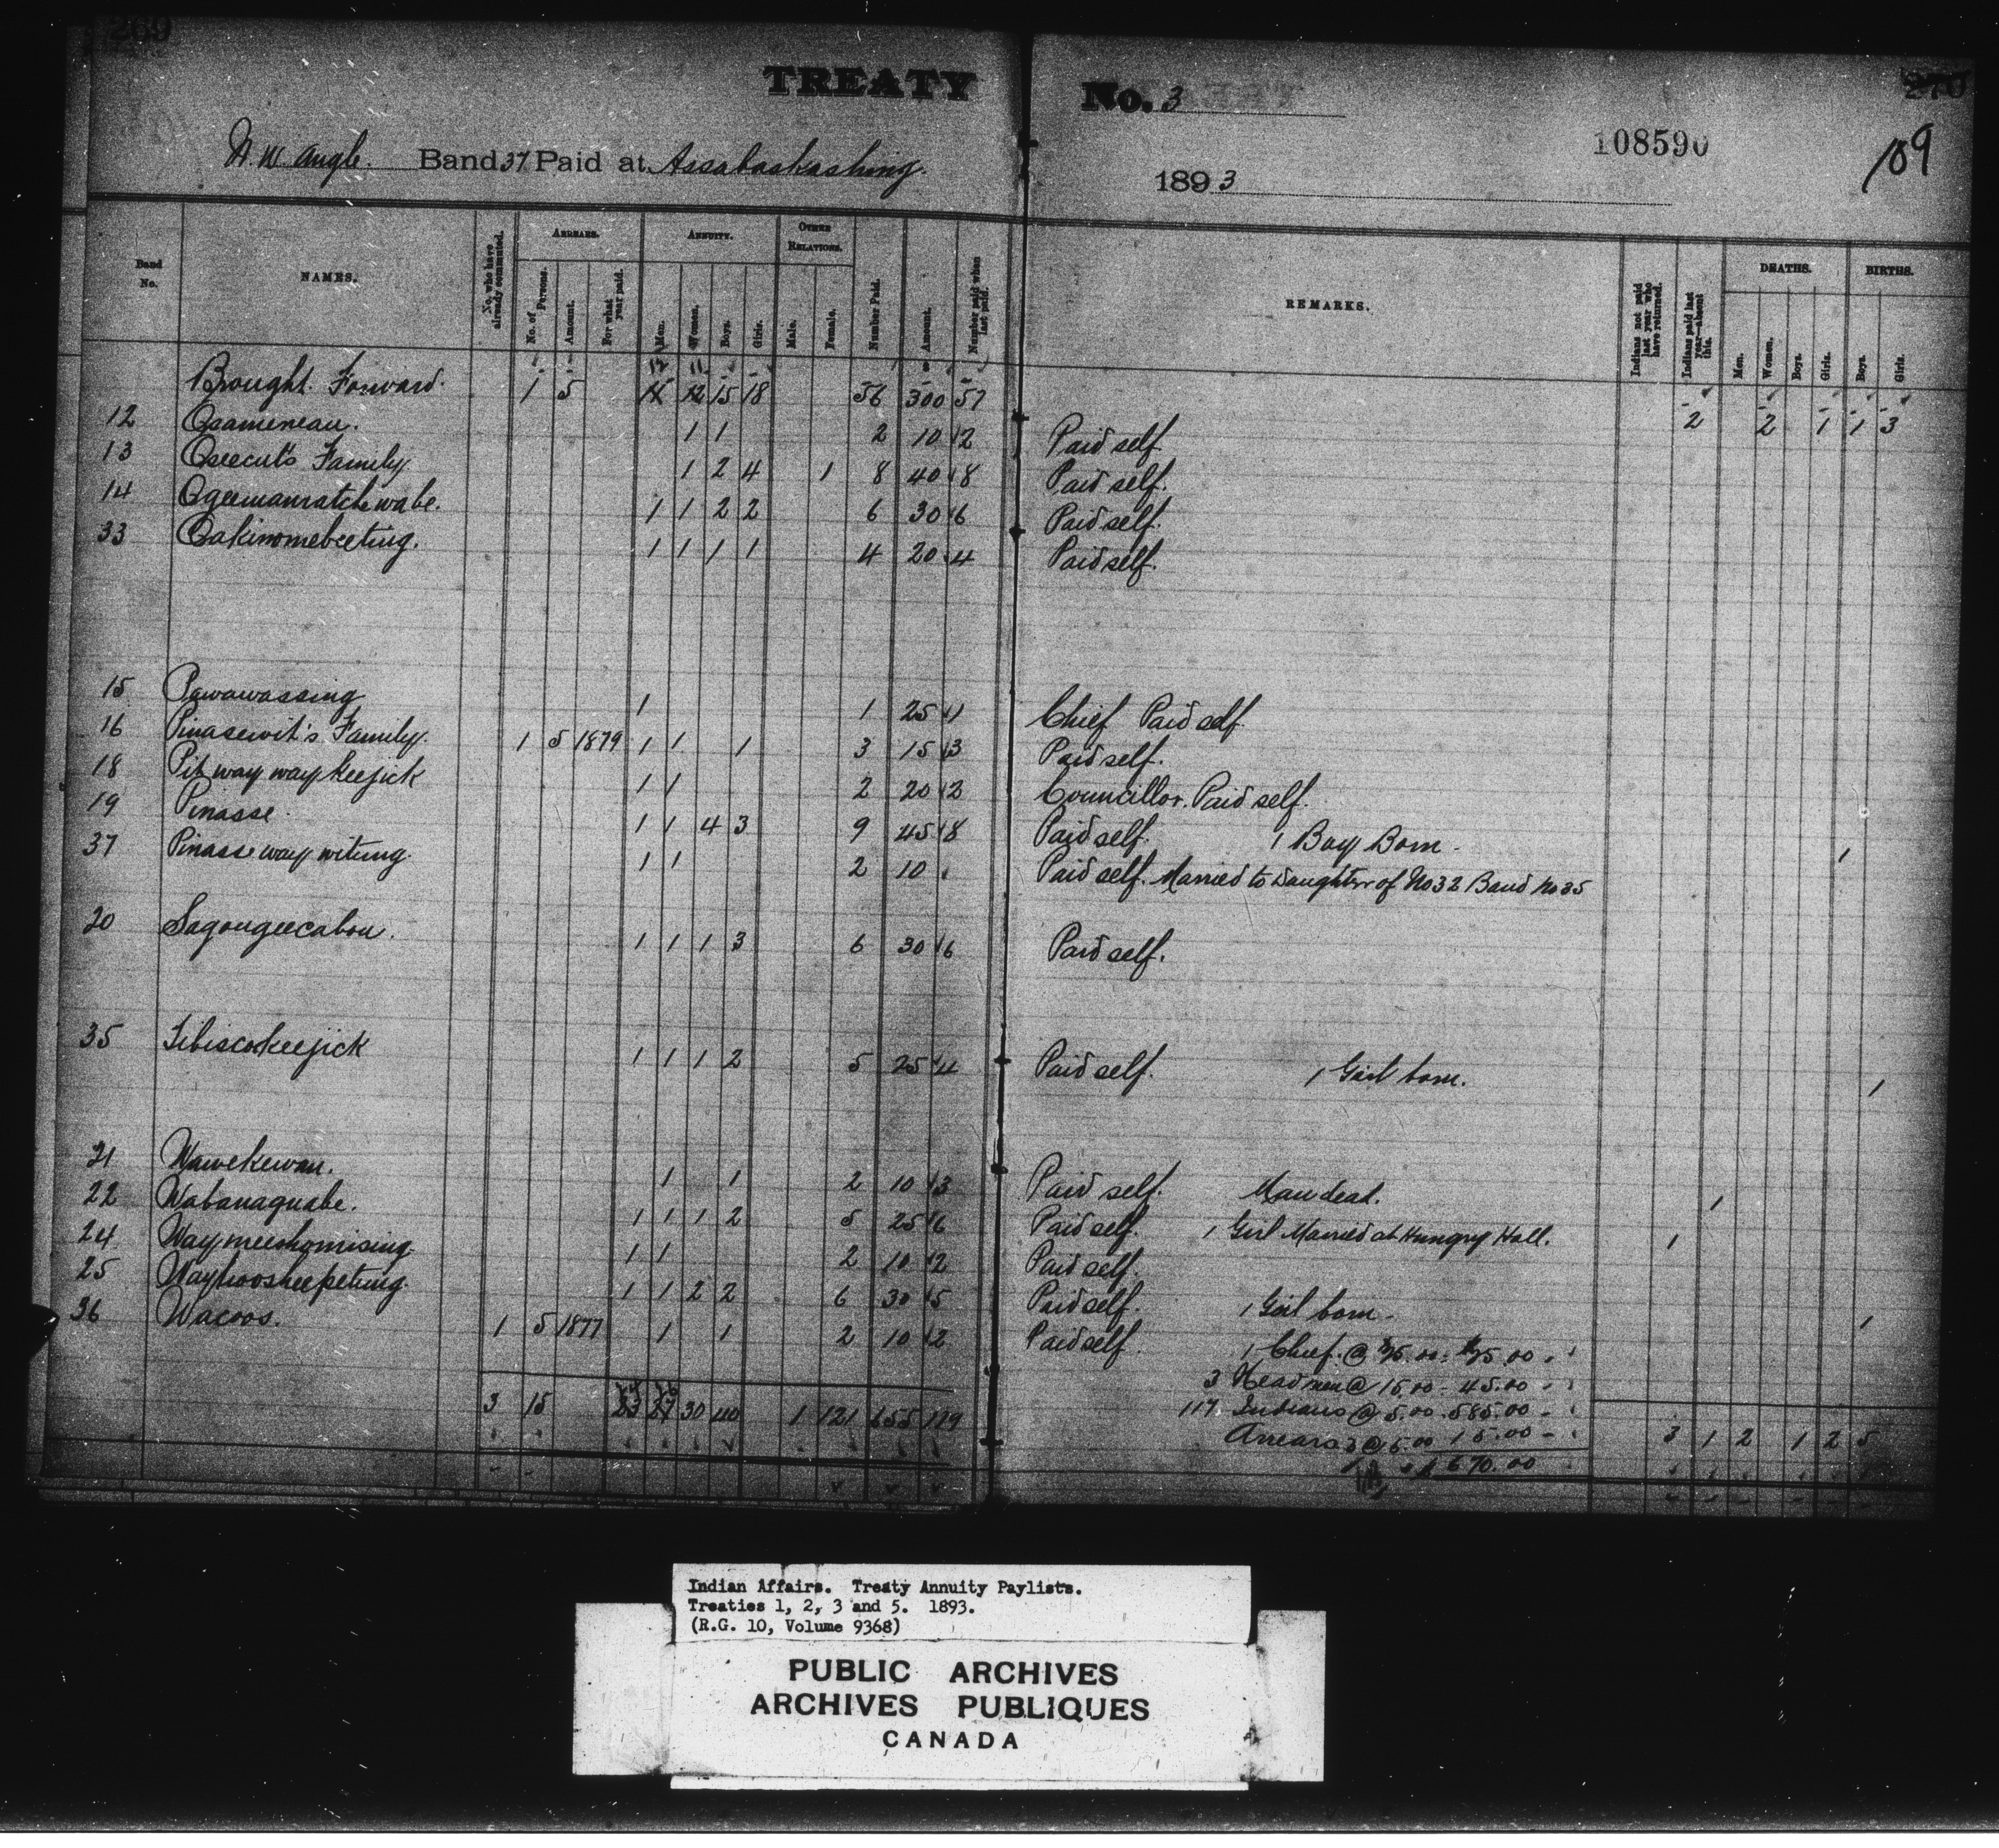 269
TREATY No. 3
270
108590
109
N. W. Angle. Band 37 Paid at Assabaskashing.
1893
Band No.
NAMES.
No. who have already commuted.
ARREARS.
No. of Persons.
Amount.
For what year paid.
ANNUITY.
Men.
Women.
Boys.
Girls.
OTHER RELATIONS.
Male.
Female.
Number Paid.
Amount.
Number paid when last paid.
REMARKS.
Indians not paid last year who have returned.
Indians paid last year—absent this.
DEATHS.
Men.
Women.
Boys.
Girls.
BIRTHS.
Boys.
Girls.
12 11
Brought Forward. 1 5 12 15 18 56 300 57 2 2 1 1 3
12 Osameneau. 1 1 2 10 2 Paid self.
13 Oseecut's Family 1 2 4 1 8 40 8 Paid self.
14 Ogeemamatchewabe. 1 1 2 2 6 30 6 Paid self.
33 Oakinomebeetung. 1 1 1 1 4 20 4 Paid self.
15 Pawawassing 1 1 25 1 Chief Paid self
16 Pinasewit's Family. 1 5 1879 1 1 1 3 15 3 Paid self.
18 Pit way way keejick 1 1 2 20 2 Councillor. Paid self.
19 Pinasse. 1 1 4 3 9 45 8 Paid self. 1 Boy Born. 1
37 Pinasse way witung. 1 1 2 10 Paid self. Married to Daughter of No 32 Band No 35
20 Sagougeecabou. 1 1 1 3 6 30 6 Paid self.
35 Tibiscokeejick 1 1 1 2 5 25 4 Paid self. 1 Girl born. 1
21 Wawekewan. 1 1 2 10 3 Paid self. Man dead. 1
22 Wabanaquabe. 1 1 1 2 5 25 6 Paid self. 1 Girl Married at Hungry Hall. 1
24 Waymeeshomising. 1 1 2 10 2 Paid self.
25 Wayhooskeepetung. 1 1 2 2 6 30 5 Paid self. 1 Girl born. 1
36 Wacoos. 1 5 1877 1 1 2 10 2 Paid self.
1 Chief @ $25.00 : $25.00
3 Headmen @ 15.00 - 45.00
117 Indians @ 5.00 . 585.00
Arrears 3 @ 5.00 15.00
$670.00
24 26
3 15 23 27 30 40 1 121 655 119 3 1 2 1 2 5
Indian Affairs. Treaty Annuity Paylists.
Treaties 1, 2, 3 and 5. 1893.
(R.G. 10, Volume 9368)
PUBLIC ARCHIVES
ARCHIVES PUBLIQUES
CANADA